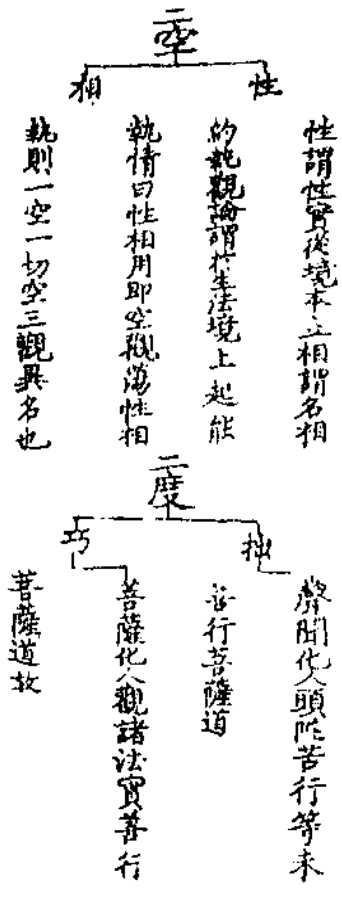 二空
性
相
性謂性實從境本立相謂名相
約執觀論謂於生法境上起能
執情曰性相用即空觀蕩性相
執則一空一切空三觀異名也
二度
拙
巧
聲聞化人頭陀苦行等未
善行菩薩道
菩薩化人觀諸法實善行
菩薩道故